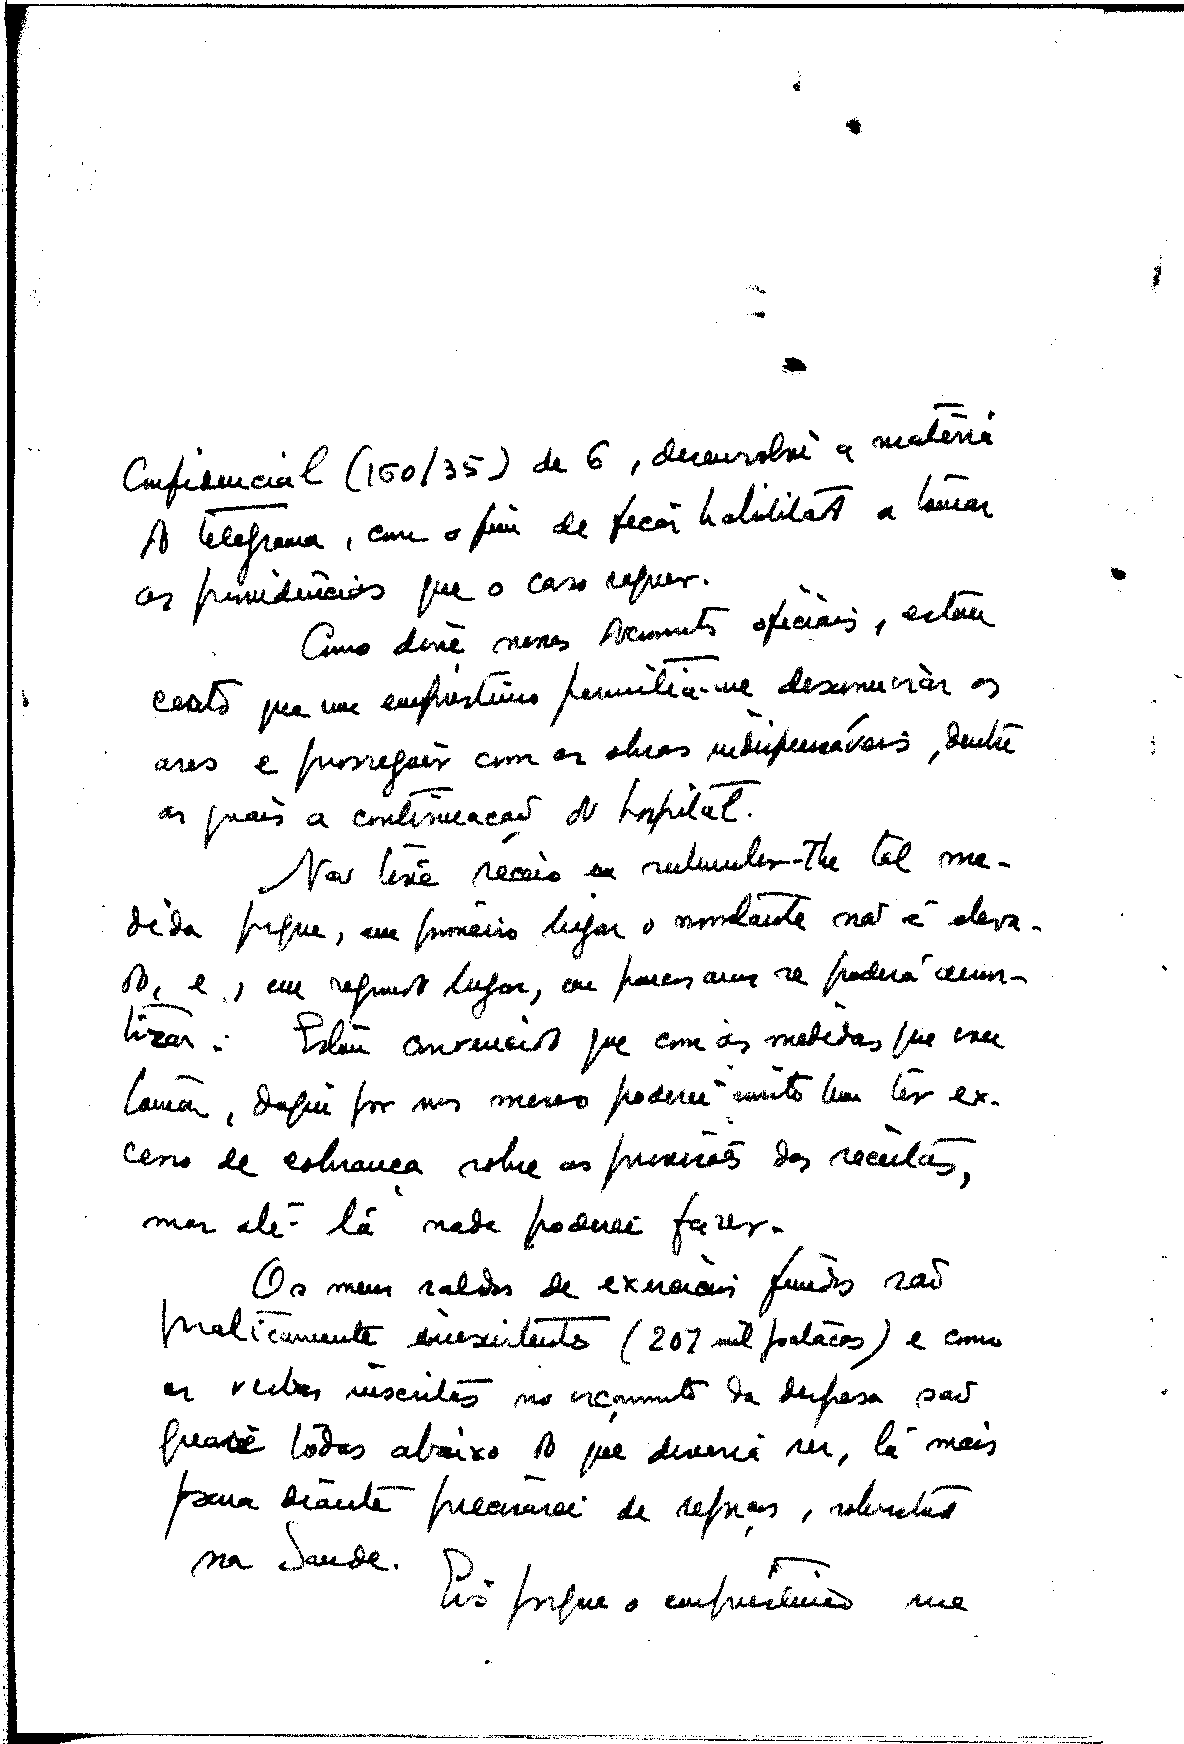 Confidencial (160/35) de 6, desenvolvi a matéria
do telegrama, com o fim de ficar habilitado a tomar
as providências que o caso requer.
Como disse nesses documentos oficiais, estou
certo que um empréstimo permitia-me desanuviar os
ares e prosseguir com as obras indispensáveis, dentre
as quais a continuação do hospital.
Não tive receio em submeter-lhe tal me-
dida porque, em primeiro lugar o montante não é eleva-
do, e, em segundo lugar, em poucos anos se poderá amor-
tizar. Estou convencido que com as medidas que vou
tomar, daqui por uns meses poderei muito bem ter ex-
cesso de cobrança sobre as previsões das receitas,
mas até lá nada poderei fazer.
Os meus saldos de exercícios findos são
praticamente inexistentes (207 mil patacas) e como
as verbas inscritas no orçamento da despesa são
quase todas abaixo do que deveria ser, lá mais
para diante precisarei de reforços, sobretudo
na Saude.
Eis porque o empréstimo me